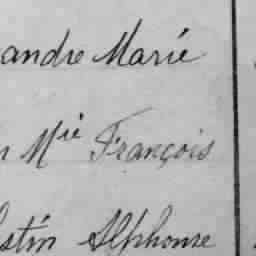 andre Marie
n Mie François
stin Alphonse